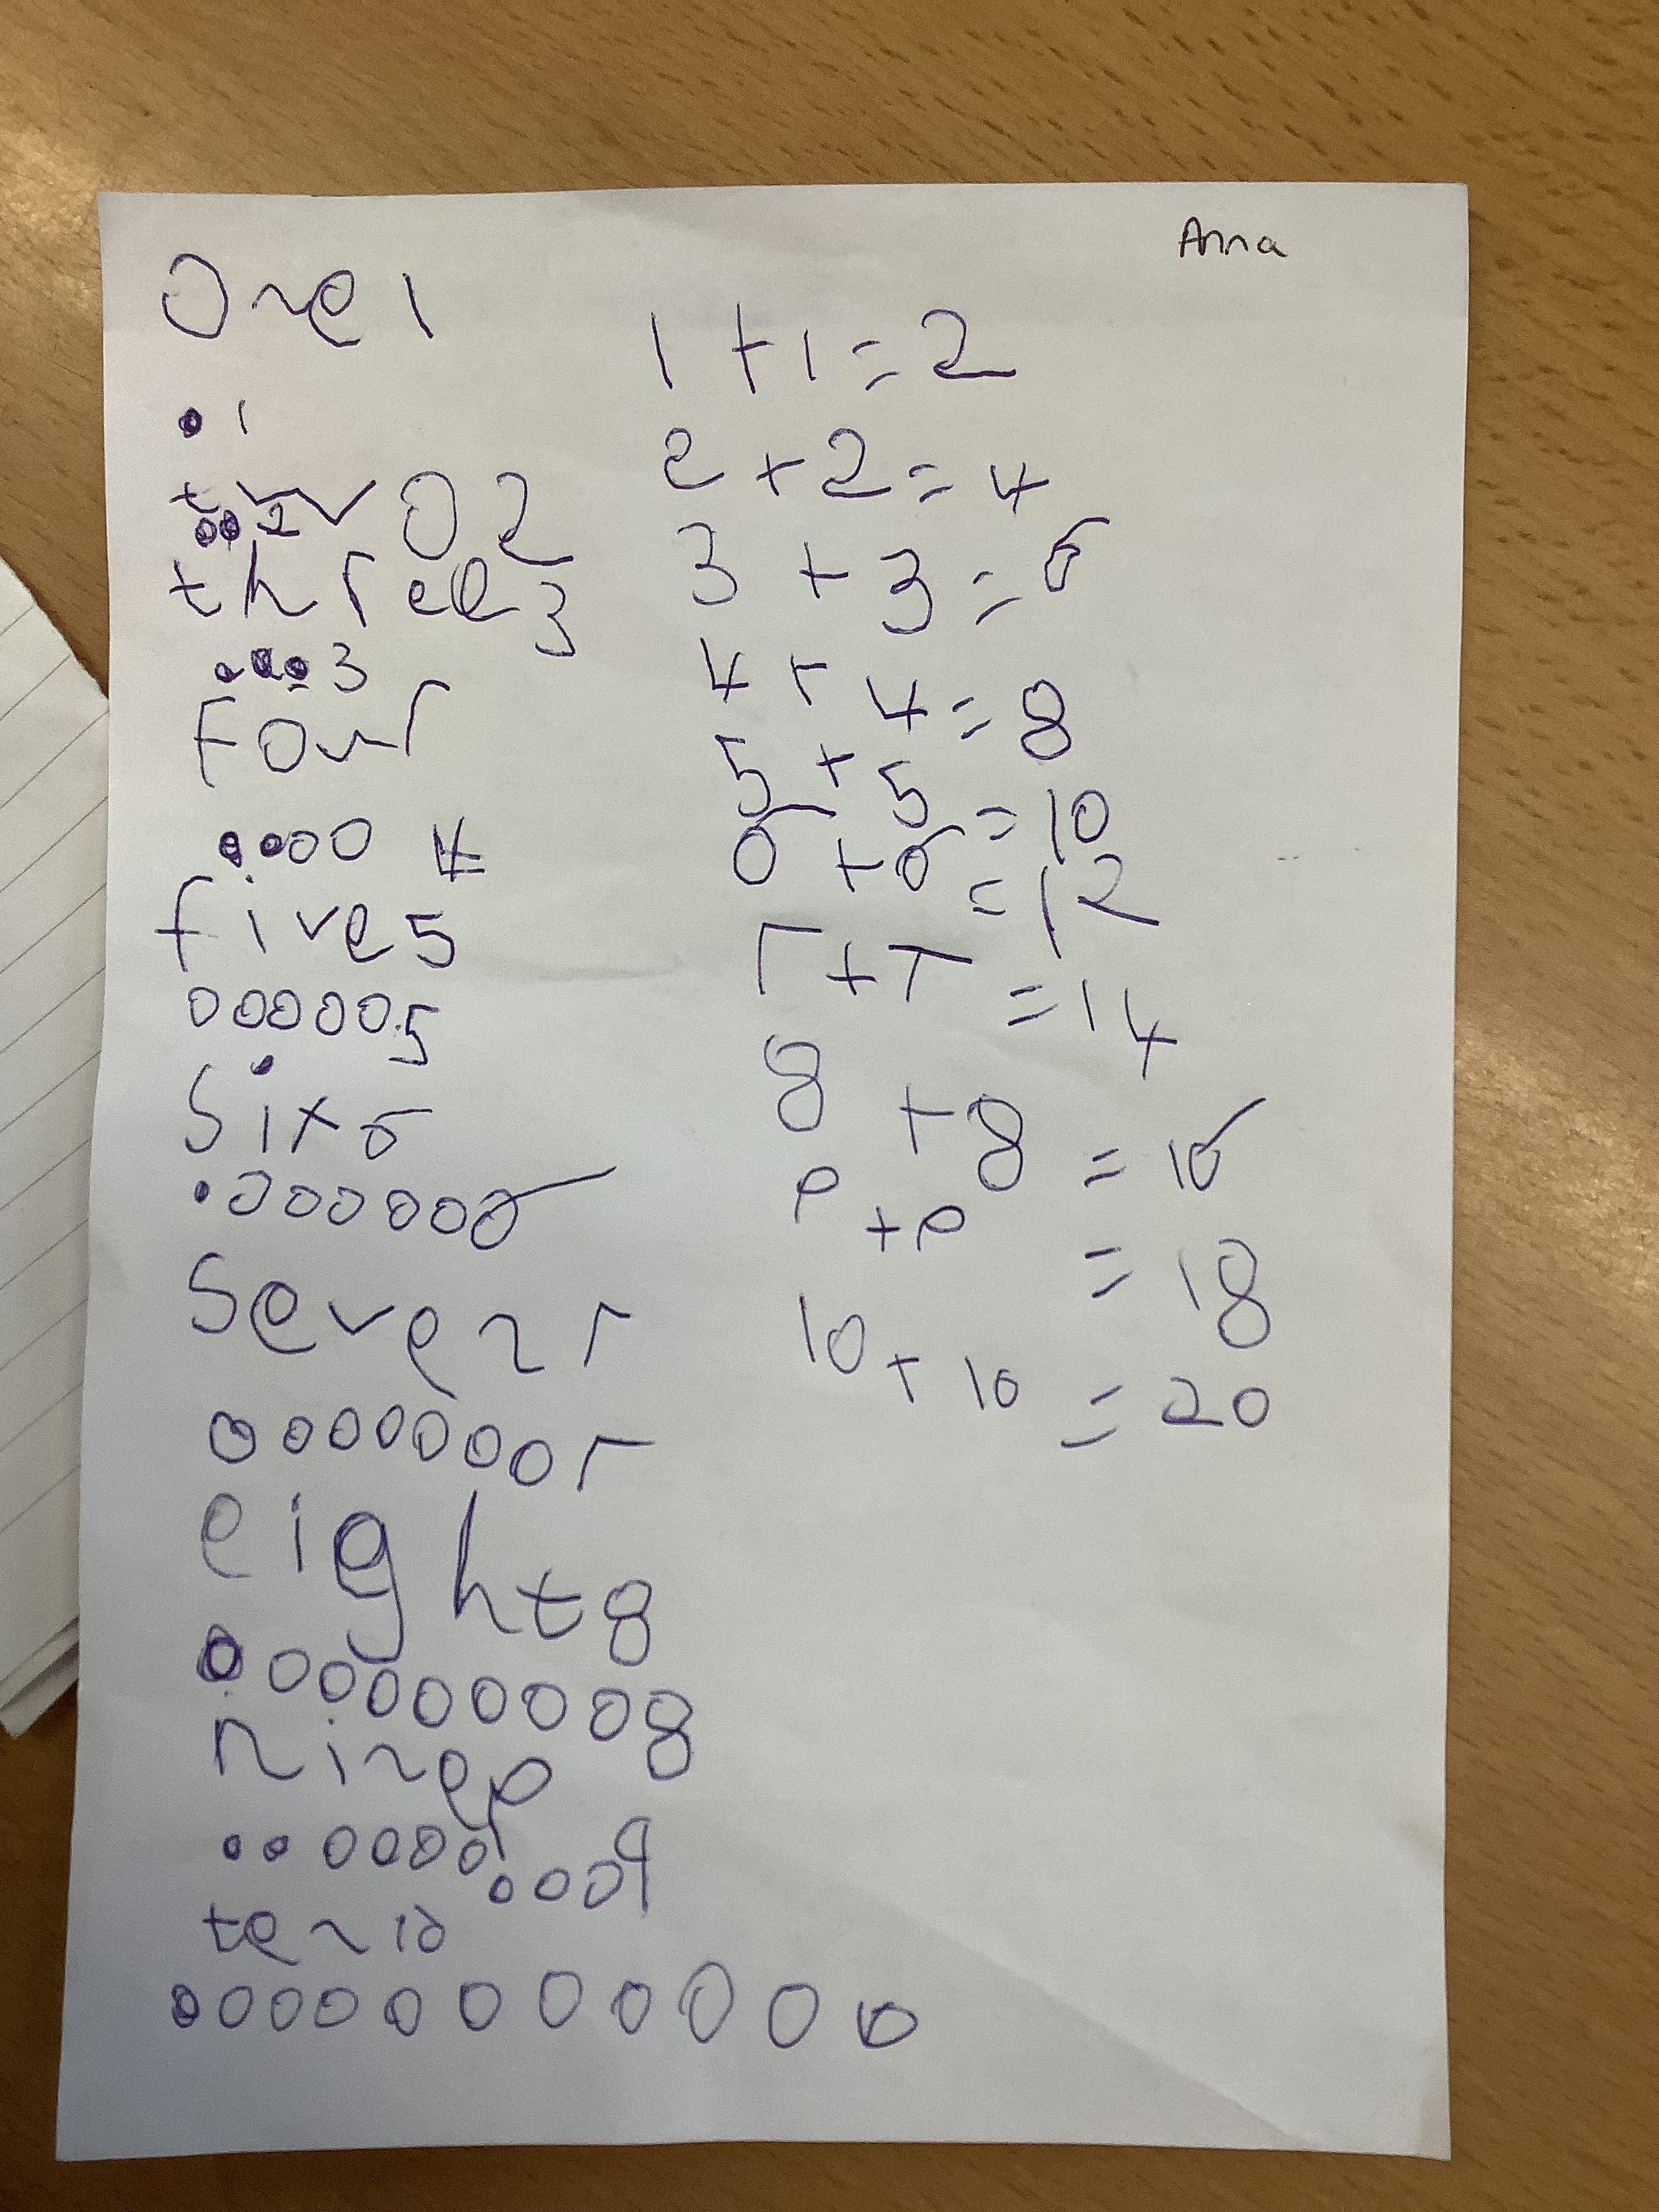 Anna
One 1
1
two 2
2
three 3
3
Four
4
five 5
5
Six 6
6
Seven 7
7
eight 8
8
nine 9
9
ten 10
10
1 + 1 = 2
2 + 2 = 4
3 + 3 = 6
4 + 4 = 8
5 + 5 = 10
6 + 6 = 12
7 + 7 = 14
8 + 8 = 16
9 + 9 = 18
10 + 10 = 20